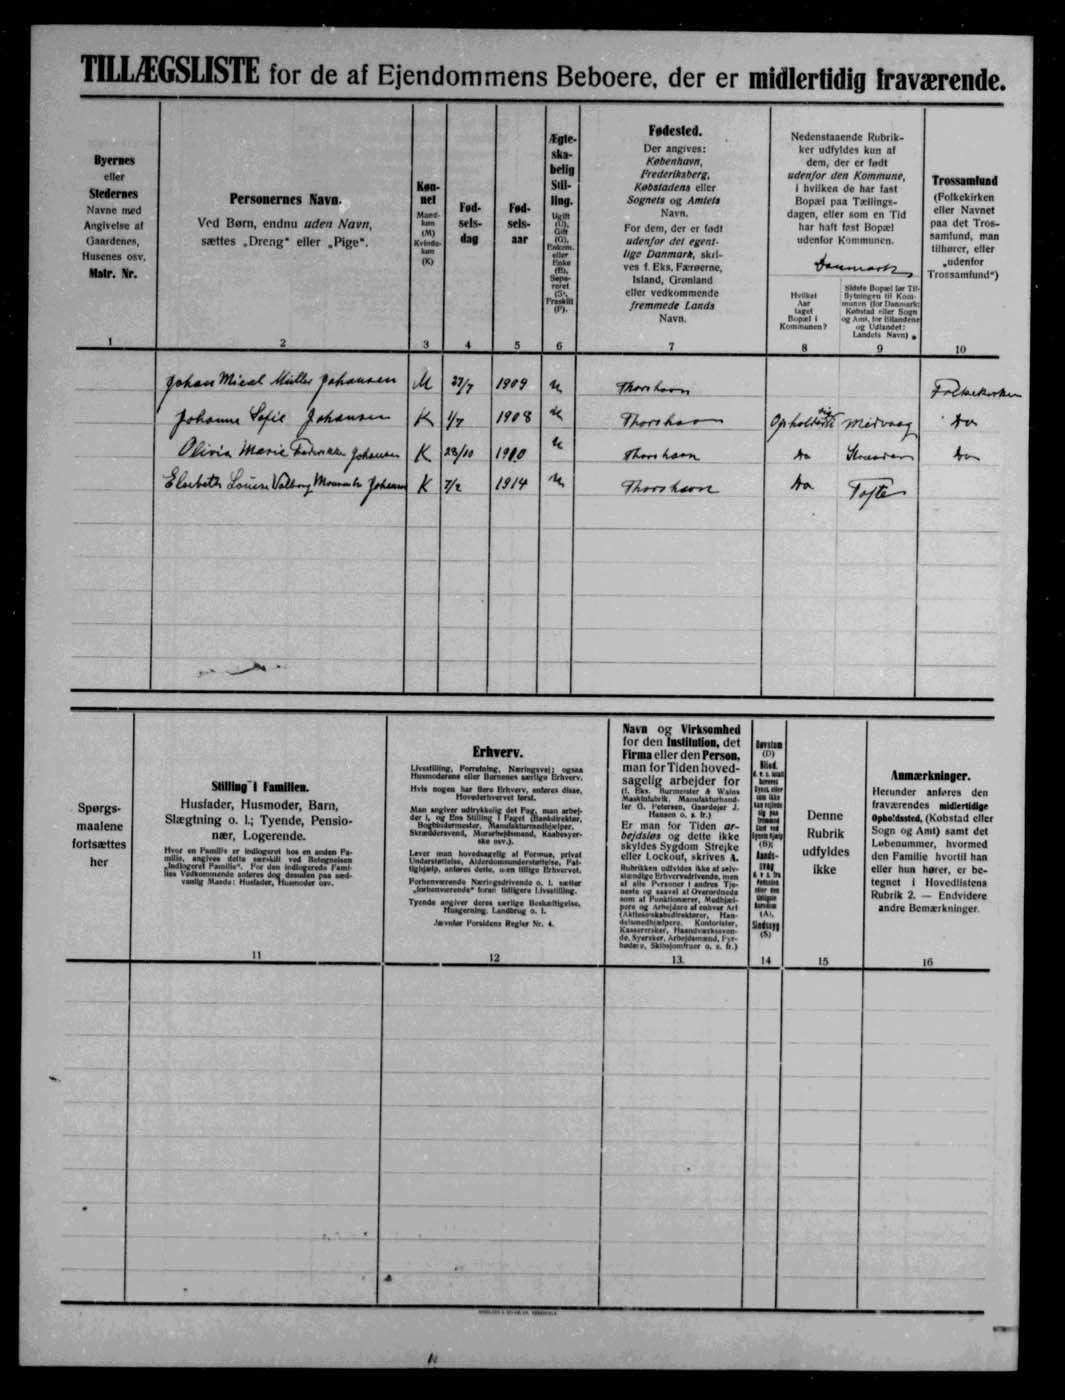 TILLÆGSLISTE for de af Ejendommens Beboere, der er midlertidig fraværende.
Byernes
eller
Stedernes
Navne med
Angivelse af
Gaardenes,
Husenes osv.
Matr. Nr.
1
Personernes Navn.
Ved Børn, endnu uden Navn,
sættes „Dreng“ eller „Pige“.
2
Køn-
net
Mand-
køn
(M)
Kvinde-
køn
(K)
3
Fød-
sels-
dag
4
Fød-
sels-
aar
5
Ægte-
ska-
belig
Stil-
ling.
Ugift
(U),
Gift
(G),
Enkem.
eller
Enke
(E),
Sepa-
reret
(S),
Fraskilt
(F).
6
Fødested.
Der angives:
København,
Frederiksberg,
Købstadens eller
Sognets og Amtets
Navn.
For dem, der er født
udenfor det egent-
lige Danmark, skri-
ves f. Eks. Færøerne,
Island, Grønland
eller vedkommende
fremmede Lands
Navn.
7
Nedenstaaende Rubrik-
ker udfyldes kun af
dem, der er født
udenfor den Kommune,
i hvilken de har fast
Bopæl paa Tællings-
dagen, eller som en Tid
har haft fast Bopæl
udenfor Kommunen.
Danmark
Hvilket
Aar
taget
Bopæl i
Kommunen?
8
Sidste Bopæl før Til-
flytningen til Kom-
munen (for Danmark:
Købstad eller Sogn
og Amt, for Bilandene
og Udlandet:
Landets Navn).
9
Trossamfund
(Folkekirken
eller Navnet
paa det Tros-
samfund, man
tilhører, eller
„udenfor
Trossamfund“)
10
Johan Mical Müller Johansen M 27/7 1909 U Thorshavn Folkekirken
Johanne Sofie Johansen K 1/7 1908 U Thorshavn Midvaag Do
Olivia Marie Johansen K 28/10 1910 U Thorshavn Do Do
Elsebeth Louise Valborg Johansen K 7/2 1914 U Thorshavn Do Tofte
Spørgs-
maalene
fortsættes
her
Stilling i Familien.
Husfader, Husmoder, Barn,
Slægtning o. l.; Tyende, Pensio-
nær, Logerende.
Hvor en Familie er indlogeret hos en anden Fa-
milie, angives dette særskilt ved Betegnelsen
„Indlogeret Familie“. For den indlogerede Fami-
lies Vedkommende anføres dog desuden paa sæd-
vanlig Maade: Husfader, Husmoder osv.
11
Erhverv.
Livsstilling, Forretning, Næringsvej; ogsaa
Husmoderens eller Børnenes særlige Erhverv.
Hvis nogen har flere Erhverv, anføres disse,
Hovederhvervet først.
Man angiver udtrykkelig det Fag, man arbej-
der i, og Ens Stilling i Faget (Bankdirektør,
Bogbindermester, Manufakturhandler,
Skræddersvend, Murarbejdsmand, Kusbesyer-
ske osv.).
Lever man hovedsagelig af Formue, privat
Understøttelse, Alderdomsunderstøttelse, Fat-
tighjælp, anføres dette, uden tillige Erhvervet.
Forhenværende Næringsdrivende o. l. sætter
„forhenværende“ foran tidligere Livsstilling.
Tyende angiver deres særlige Beskæftigelse,
Husgerning, Landbrug o. l.
Jævnfør Forsidens Regler Nr. 4.
12
Navn og Virksomhed
for den Institution, det
Firma eller den Person,
man for Tiden hoved-
sagelig arbejder for
(f. Eks. Burmeister & Wains
Maskinfabrik, Manufakturhand-
ler G. Petersen, Gaardejer J.
Hansen o. s. fr.)
Er man for Tiden ar-
bejdsløs og dette ikke
skyldes Sygdom Strejke
eller Lockout, skrives A.
Rubrikken udfyldes ikke af selv-
stændige Erhvervsdrivende, men
af alle Personer i andres Tje-
neste og saavel af Overordnede
som af Funktionærer, Medhjæl-
pere og Arbejdere af enhver Art
(Aktieselskabsdirektører, Han-
delsmedhjælpere, Kontorister,
Kassererske, Haandværkssven-
de, Syersker, Arbejdsmænd, Fyr-
bødere, Skibsjomfruer o. s. fr.)
13.
Døvstum
(D)
Blind,
(B);
Aands-
svag
(A),
Sindssyg
(S)
14
Denne
Rubrik
udfyldes
ikke
15
Anmærkninger.
Herunder anføres den
fraværendes midlertidige
Opholdssted, (Købstad eller
Sogn og Amt) samt det
Løbenummer, hvormed
den Familie hvortil han
eller hun hører, er be-
tegnet i Hovedlistens
Rubrik 2. — Endvidere
andre Bemærkninger.
16